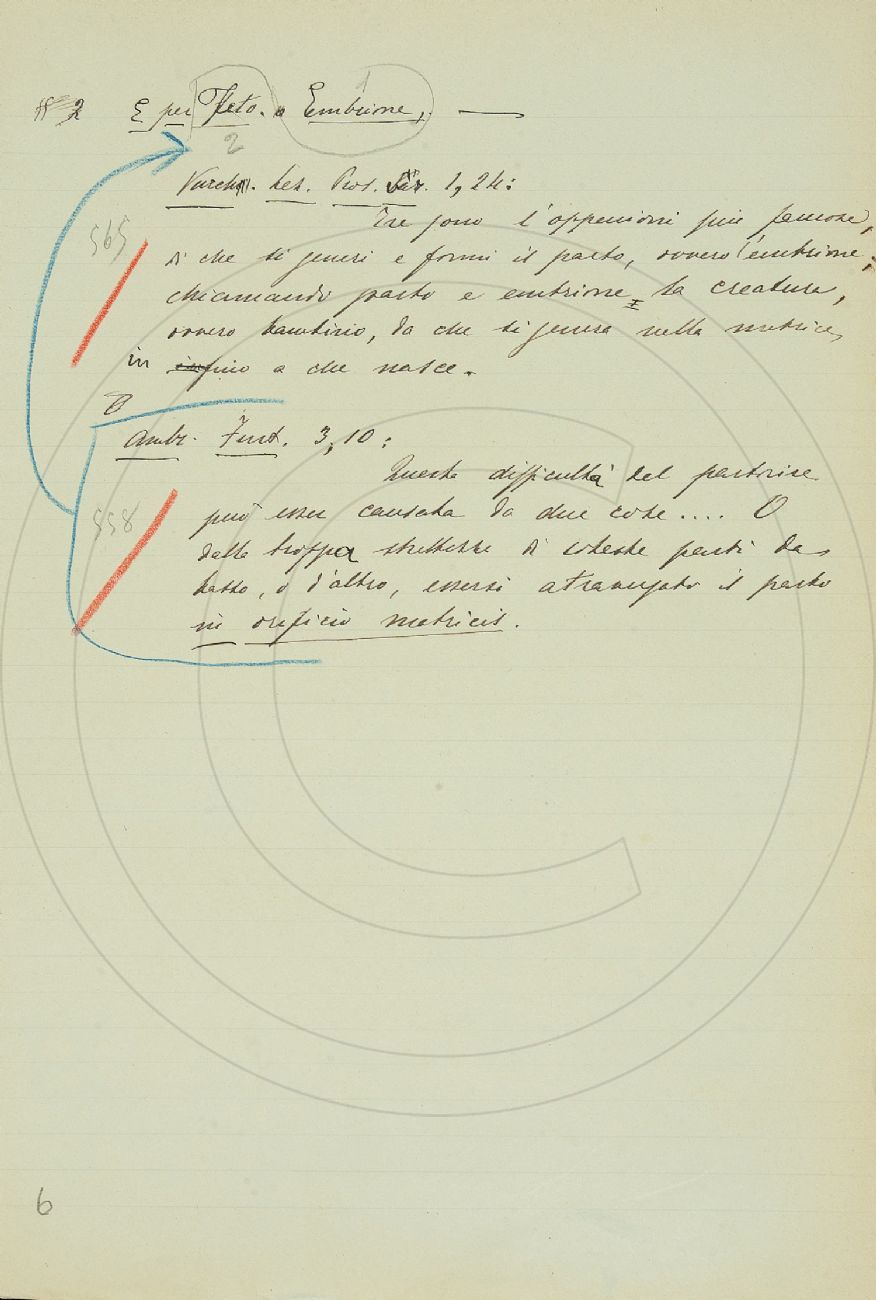 § 2 E per Feto. o Embrione, —
1
2
Varchi. Lez. Pros. Var. 1, 24:
Tre sono l'oppenioni più famose,
565
di che si generi e formi il parto, ovvero l'embrione;
chiamando parto e embrione la creatura,
ovvero bambino, da che si genera nella matrice,
in fino a che nasce.
Ambr. Furt. 3, 10:
Questa difficultà del partorire
558
può esser causata da due cose .... O
dalla troppa strettezze di coteste parti da
basso, o d'altro, essersi atraversato il parto
in orificio matricis.
6